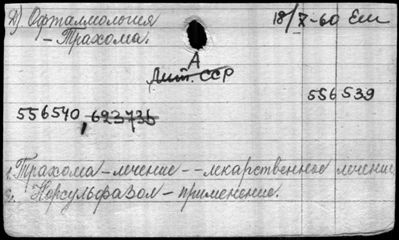 д) Офтальмология 18/X-60 Еш
– Трахома.
А
Лит. ССР
556539
556540, 623735
1. Трахома – лечение -- лекарственное лечение
2. Норсульфазол – применение.